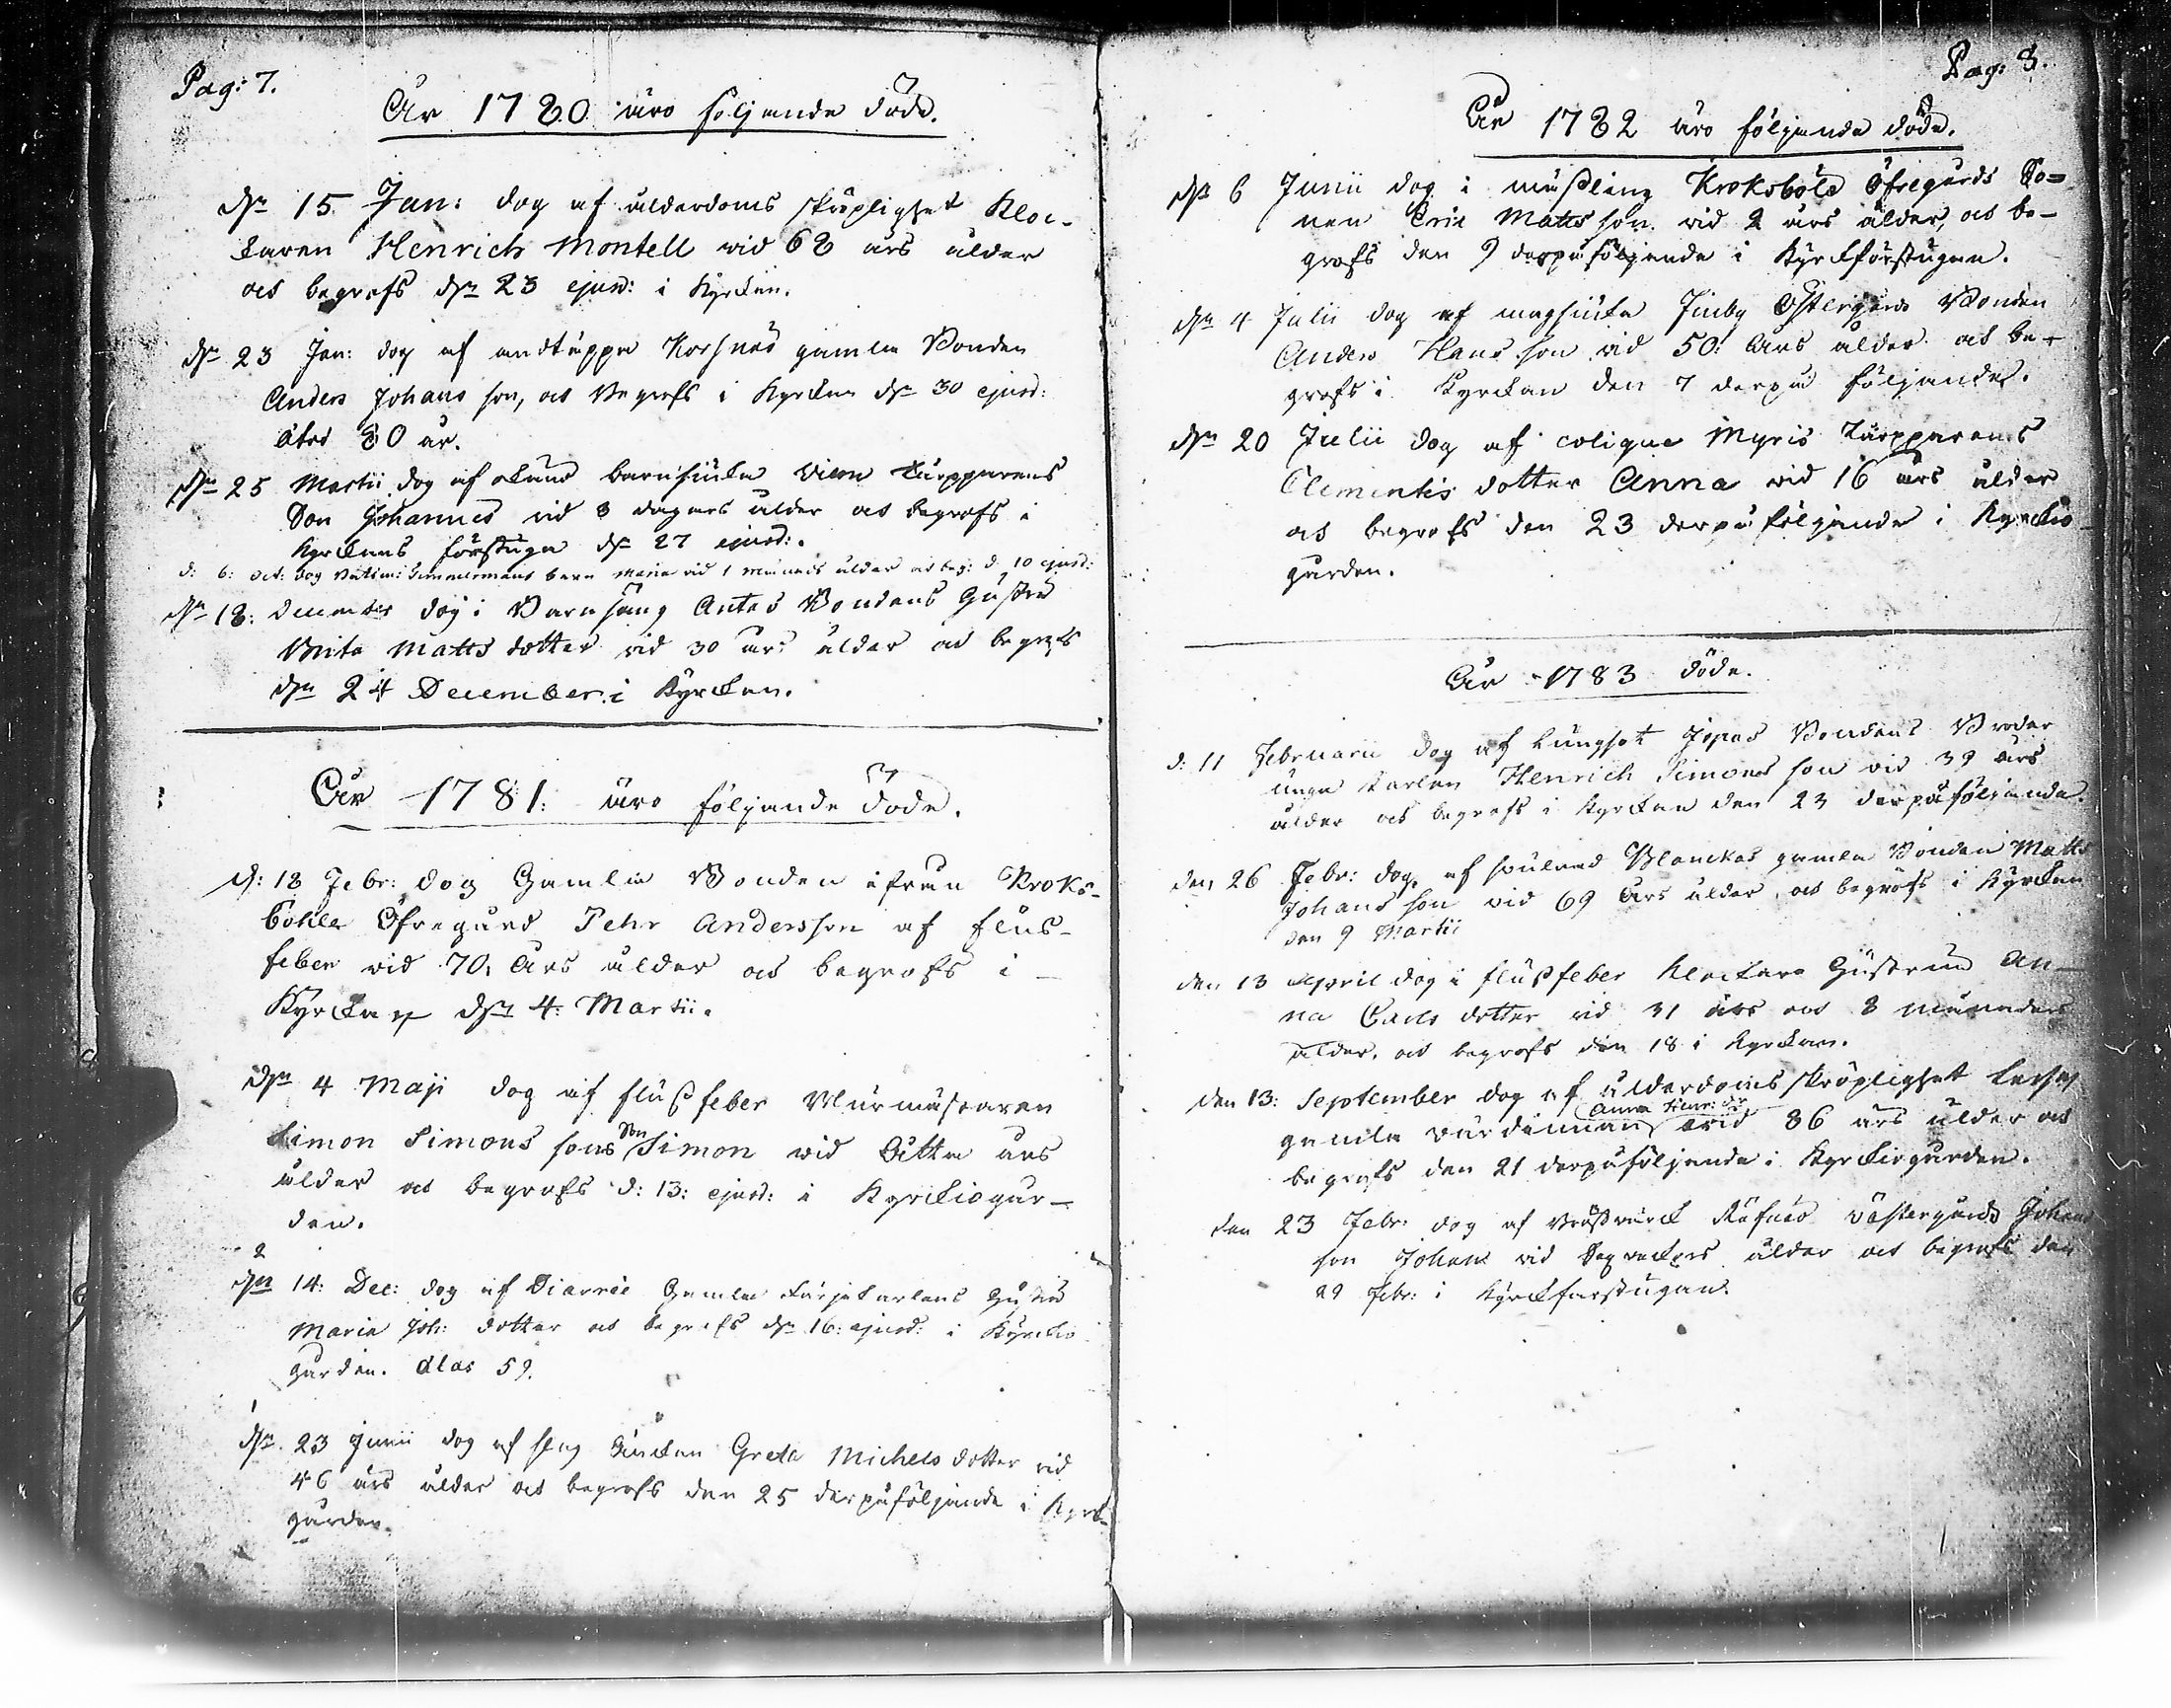 Pag: 7.
År 1780 äro följande döde.
dn 15 Jan: dog af ålderdoms skröplighet Kloc-
karen Henrich Montell wid 68 års ålder
och begrofs dn 23 ejusd: i Kyrckan.
dn 23 Jan: dog af andtäppa Korsnäs gamla Bonden
Anders Johans son, och Begrofs i Kyrckan dn 30 ejusd:
80 år.
dn 25 Martii dog af barnsiuka torpparens
Son Johannes wid 8 dagars ålder och begrofs i
Kyrckans förstuga dn 27 ejusd:.
d: 6: Oct: dog Timmermans barn Maria wid 1 Månads ålder och beg: d 10 ejusd:
dn 18: December dog i Barnsäng Antas Bondens Hustru
Brita Matts dotter wid 30 års ålder och begrofs
dn 24 December i Kyrckan.
År 1781: äro följande döde.
d: 18 Febr: dog Gamla Bonden ifrån Kroks-
böhle Öfregård Pehr Andersson af flus-
feber wid 70: Års ålder och begrofs i
Kyrckan dn 4: Martii.
dn 4 Maji dog af flußfeber Murmästaren
Simon Simons sons Son Simon wid Otta års
ålder och begrofs d: 13: ejusd: i Kyrckiogår-
den.
2
dn 14: Dec: dog af Diarrée Gamla färjekarlens Hustru
Maria Joh: dotter och begrofs dn 16: ejusd: i Kyrckio
gården. 59.
1
dn. 23 Junii dog af slag Änckan Greta Michels dotter wid
46 års ålder och begrofs den 25 derpåföljande i Kyrck-
gården.
Pag: 8.
År 1782 äro följande döde.
dn 6 Junii dog i mäßling Kroksböle Öfregårds So=
nen Eric Mattsson wid 2 års ålder, och be-
grofs den 9 derpåföljande i Kyrckförstugan.
dn 4 Julii dog af magsiuka Finby Östergårds Bonden
Anders Hans son wid 50: Års ålder och be-
grofs i Kyrckan den 7 derpå följande.
dn 20 Julii dog af colique Myris torpparens
Clementis dotter Anna wid 16 års ålder
och begrofs den 23 derpåföljande i Kyrckio
gården.
År 1783 döde.
d: 11 Februarii dog af Lungsot Jopas Bondens Broder
unga karlen Henrich Simons son wid 39 års
ålder och begrofs i Kyrckan den 23 derpåföljande.
den 26 Febr: dog af Blanckas gamla Bonden Matts
Johans son wid 69 Års ålder, och begrofs i Kyrckan
den 9 Martii
den 13 April dog i flußfeber Klockare Hustrun An-
na Carls dotter wid 31 års och 8 månaders
ålder, och begrofs den 18 i Kyrckan.
den 13: September dog af ålderdoms skröplighet
gamla Anna Henr: dr wid 86 års ålder och
begrofs den 21 derpåföljande i Kyrckiogården.
den 23 Febr: dog af Bröstwärck Refnäs Wästergårds Johans
son Johan wid Sex weckors ålder och begrofs den
29 Febr: i Kyrckfarstugan.